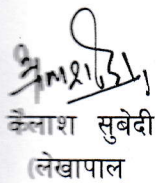 कैलाश सुबेदी
(लेखापाल